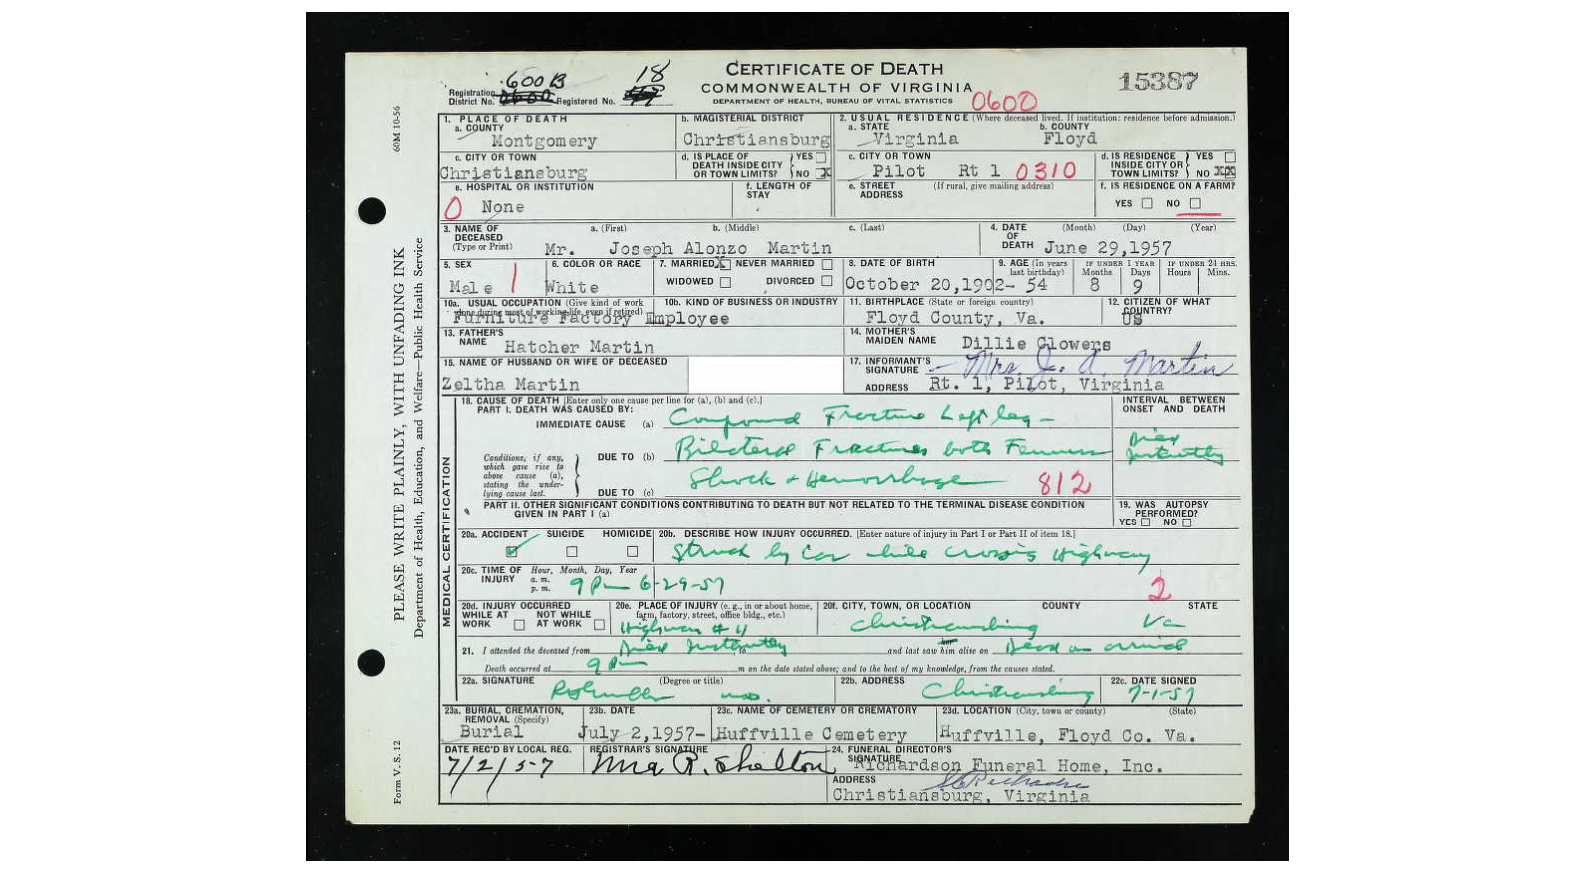 CERTIFICATE OF DEATH
COMMONWEALTH OF VIRGINIA
DEPARTMENT OF HEALTH, BUREAU OF VITAL STATISTICS
15387
600B
18
Registration District No. 0600 Registered No.
0600
60M 10-56
PLEASE WRITE PLAINLY, WITH UNFADING INK
Department of Health, Education, and Welfare—Public Health Service
Form V. S. 12
1. PLACE OF DEATH
a. COUNTY
Montgomery
b. MAGISTERIAL DISTRICT
Christiansburg
2. USUAL RESIDENCE (Where deceased lived. If institution: residence before admission.)
a. STATE
Virginia
b. COUNTY
Floyd
c. CITY OR TOWN
Christiansburg
d. IS PLACE OF DEATH INSIDE CITY OR TOWN LIMITS? YES NO X
c. CITY OR TOWN
Pilot Rt 1 0310
d. IS RESIDENCE INSIDE CITY OR TOWN LIMITS? YES NO XX
e. HOSPITAL OR INSTITUTION
0 None
f. LENGTH OF STAY
e. STREET ADDRESS (If rural, give mailing address)
f. IS RESIDENCE ON A FARM?
YES NO
3. NAME OF DECEASED (Type or Print)
a. (First) b. (Middle) c. (Last)
Mr. Joseph Alonzo Martin
4. DATE OF DEATH (Month) (Day) (Year)
June 29,1957
5. SEX
Male 1
6. COLOR OR RACE
White
7. MARRIED X NEVER MARRIED
WIDOWED DIVORCED
8. DATE OF BIRTH
October 20,1902-
9. AGE (In years last birthday)
54
IF UNDER 1 YEAR
Months Days
8 9
IF UNDER 24 HRS.
Hours Mins.
10a. USUAL OCCUPATION (Give kind of work done during most of working life, even if retired)
Furniture Factory Employee
10b. KIND OF BUSINESS OR INDUSTRY
11. BIRTHPLACE (State or foreign country)
Floyd County, Va.
12. CITIZEN OF WHAT COUNTRY?
US
13. FATHER'S NAME
Hatcher Martin
14. MOTHER'S MAIDEN NAME
Dillie Clowers
15. NAME OF HUSBAND OR WIFE OF DECEASED
Zeltha Martin
17. INFORMANT'S SIGNATURE
Mrs. J. A. Martin
ADDRESS Rt. 1, Pilot, Virginia
MEDICAL CERTIFICATION
18. CAUSE OF DEATH [Enter only one cause per line for (a), (b) and (c).]
PART I. DEATH WAS CAUSED BY:
IMMEDIATE CAUSE (a) Compound Fracture Left leg -
INTERVAL BETWEEN ONSET AND DEATH
Conditions, if any, which gave rise to above cause (a), stating the underlying cause last.
DUE TO (b) Bilateral Fractures both Femurs
Died Instantly
DUE TO (c) Shock + Hemorrhage 812
PART II. OTHER SIGNIFICANT CONDITIONS CONTRIBUTING TO DEATH BUT NOT RELATED TO THE TERMINAL DISEASE CONDITION GIVEN IN PART I (a)
19. WAS AUTOPSY PERFORMED?
YES NO
20a. ACCIDENT SUICIDE HOMICIDE
20b. DESCRIBE HOW INJURY OCCURRED. [Enter nature of injury in Part I or Part II of item 18.]
Struck by Car while crossing Highway
20c. TIME OF INJURY Hour, Month, Day, Year
a. m.
p. m.
9 Pm 6-29-57
2
20d. INJURY OCCURRED
WHILE AT WORK NOT WHILE AT WORK
20e. PLACE OF INJURY (e. g., in or about home, farm, factory, street, office bldg., etc.)
Highway # 11
20f. CITY, TOWN, OR LOCATION COUNTY STATE
Christiansburg Va
21. I attended the deceased from Died Instantly, to and last saw him alive on Dead on arrival
her
Death occurred at 9 Pm m on the date stated above; and to the best of my knowledge, from the causes stated.
22a. SIGNATURE (Degree or title)
M.D.
22b. ADDRESS
Christiansburg
22c. DATE SIGNED
7-1-57
23a. BURIAL, CREMATION, REMOVAL (Specify)
Burial
23b. DATE
July 2,1957-
23c. NAME OF CEMETERY OR CREMATORY
Huffville Cemetery
23d. LOCATION (City, town or county) (State)
Huffville, Floyd Co. Va.
DATE REC'D BY LOCAL REG.
7/2/57
REGISTRAR'S SIGNATURE
Mrs R. Shelton
24. FUNERAL DIRECTOR'S SIGNATURE
Richardson Funeral Home, Inc.
ADDRESS
Christiansburg, Virginia